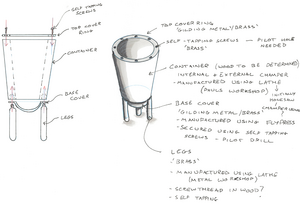 SELF TAPPING
SCREWS
TOP COVER
RING
CONTAINER
BASE
COVER
LEGS
TOP COVER RING
"GILDING METAL/BRASS"
SELF-TAPPING SCREWS – PILOT HOLE
"BRASS" NEEDED
CONTAINER (WOOD TO BE DETERMINED)
INTERNAL + EXTERNAL CHAMFER
- MANUFACTURED USING LATHE
(PAULS WORKSHOP)
BASE COVER
"GILDING METAL/BRASS"
- MANUFACTURED USING FLYPRESS
- SECURED USING SELF TAPPING
SCREWS - PILOT DRILL
LEGS
"BRASS"
- MANUFACTURED USING LATHE
(METAL WORKSHOP)
- SCREWTHREAD IN WOOD?
- SELF TAPPING